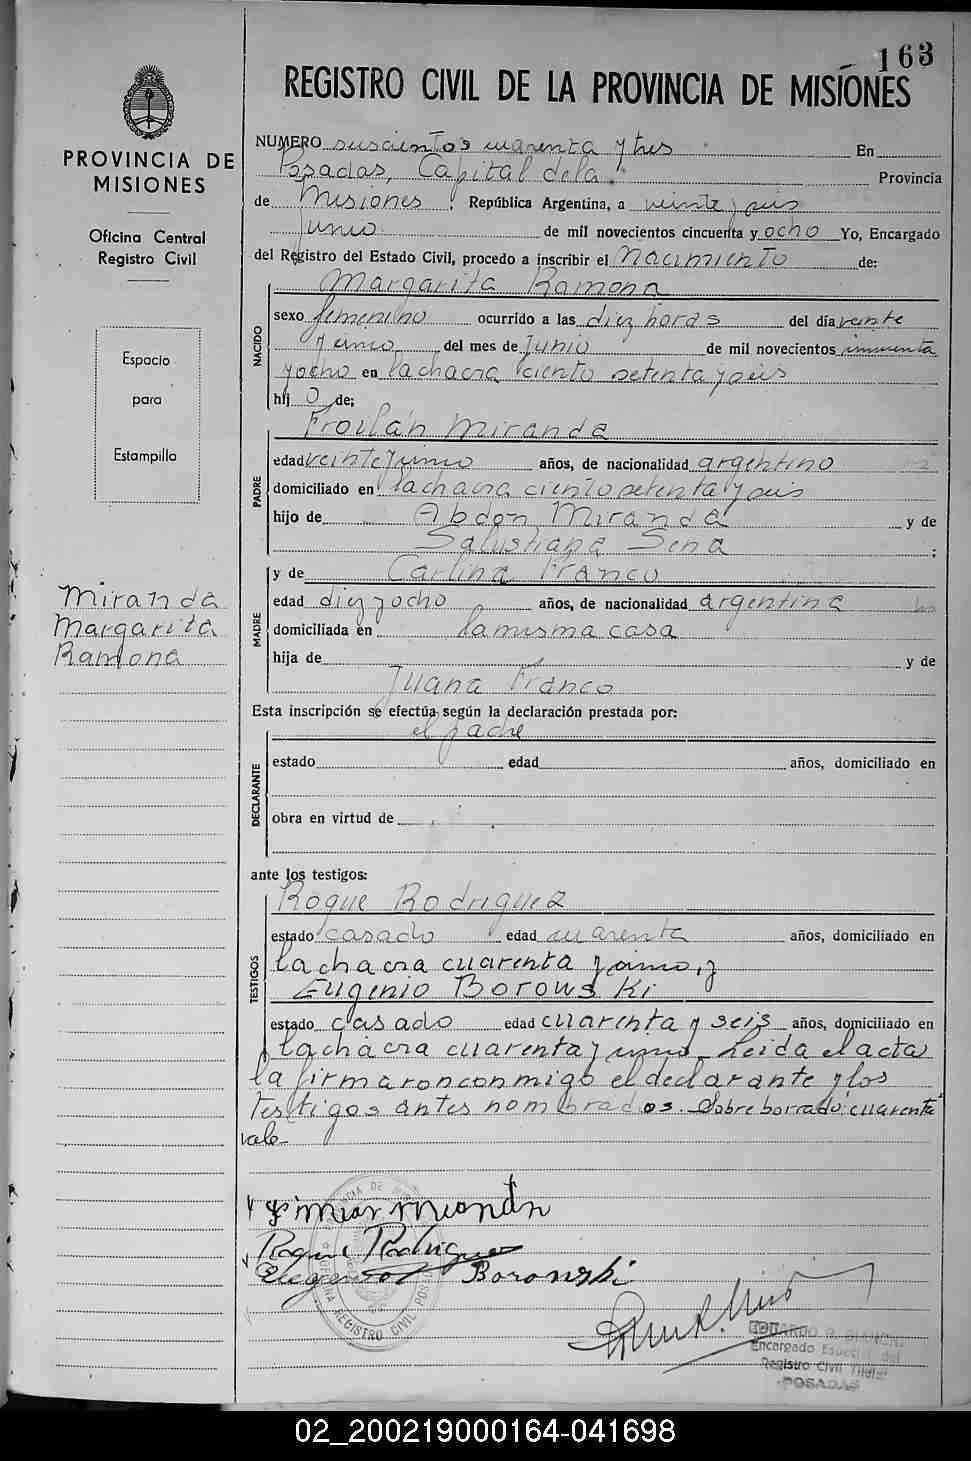 163
REGISTRO CIVIL DE LA PROVINCIA DE MISIONES
PROVINCIA DE
MISIONES
Oficina Central
Registro Civil
Espacio
para
Estampilla
Miranda
Margarita
Ramona
NUMERO suscientos cuarenta y tres En
Posadas, Capital de la Provincia
de Misiones República Argentina, a veinte y seis
junio de mil novecientos cincuenta y ocho Yo, Encargado
del Registro del Estado Civil, procedo a inscribir el Nacimiento de:
NACIDO
Margarita Ramona
sexo femenino ocurrido a las diez horas del día veinte
y uno del mes de junio de mil novecientos cincuenta
y ocho en la chacra ciento setenta y seis
hij o de:
PADRE
Froilán Miranda
edad veinte y uno años, de nacionalidad argentino
domiciliado en la chacra ciento setenta y seis
hijo de Abdon Miranda y de
Salustiana Sena ;
MADRE
y de Carlina Franco
edad diez y ocho años, de nacionalidad argentina
domiciliada en la misma casa
hija de y de
Juana Franco
Esta inscripción se efectúa según la declaración prestada por:
DECLARANTE
el padre
estado edad años, domiciliado en
obra en virtud de
ante los testigos:
TESTIGOS
Roque Rodriguez
estado casado edad cuarenta años, domiciliado en
la chacra cuarenta y uno, y
Eugenio Borowski
estado casado edad cuarenta y seis años, domiciliado en
la chacra cuarenta y uno. Leida el acta
la firmaron conmigo el declarante y los
testigos antes nombrados. Sobre borrado: cuarenta
vale
Roque Rodriguez
Eugenio Borowski
REGISTRO CIVIL POSADAS
Encargado Especial del
Registro Civil Titular
POSADAS
02_200219000164-041698